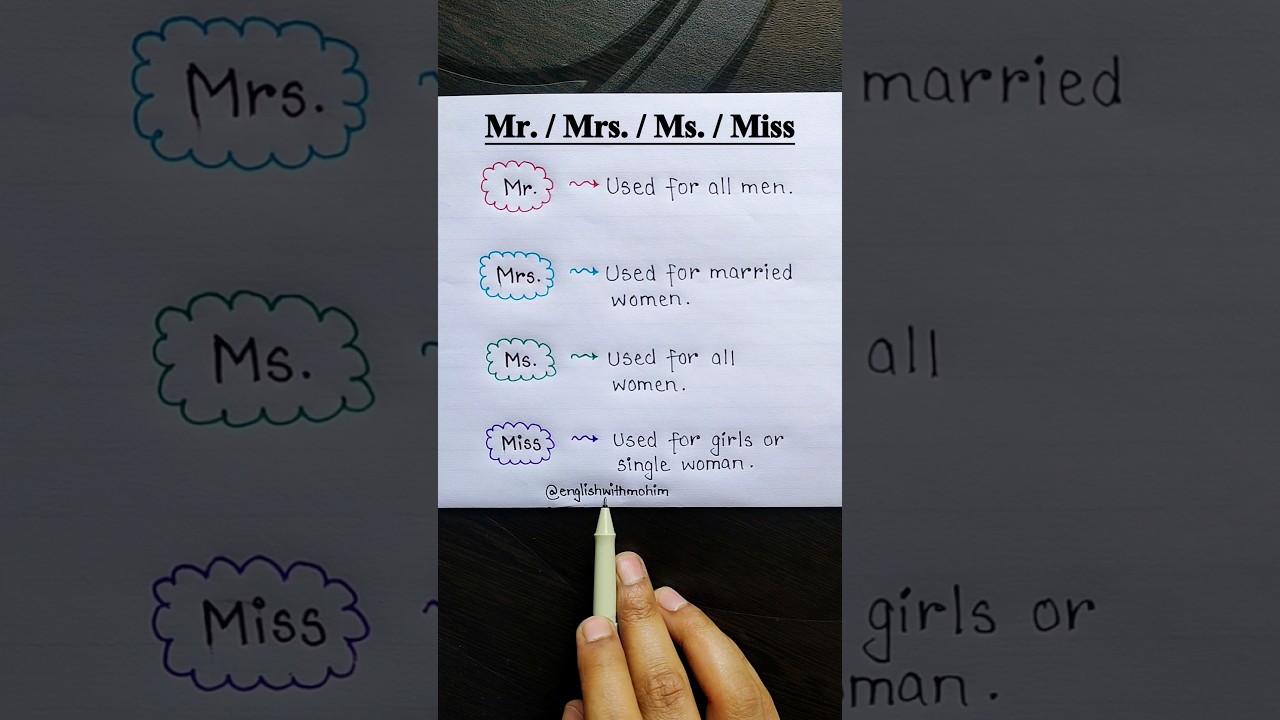 Mr. / Mrs. / Ms. / Miss
Mr. Used for all men.
Mrs. Used for married
women.
Ms. Used for all
women.
Miss Used for girls or
single woman.
@englishwithmohim
Mrs.
married
Ms.
all
Miss
girls or
man.